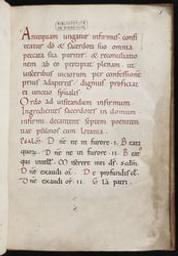 Antequam ungatur infirmus confi
teatur dō & sacerdoti sua omnia
peccata sua pariter & reconciliatio
nem ab eo percipiat plenam. ut
ulceribus uiciorum per confessione
prius adapertis dignius proficiat
ei unctio spitalis.
Ordo ad uisitandum infirmum
Ingredientes sacerdotes in domum
infirmi decantent septem poeniten
tiae psalmos cum letania.
Psalm. Dne ne in furore. I. Beati
quorū. Dne ne in furore II. Bea
qui intell. Miserere mei ds. sedm
Dne exaudi or. De profundis cl.
Dne exaudi or. II. Gla patri.